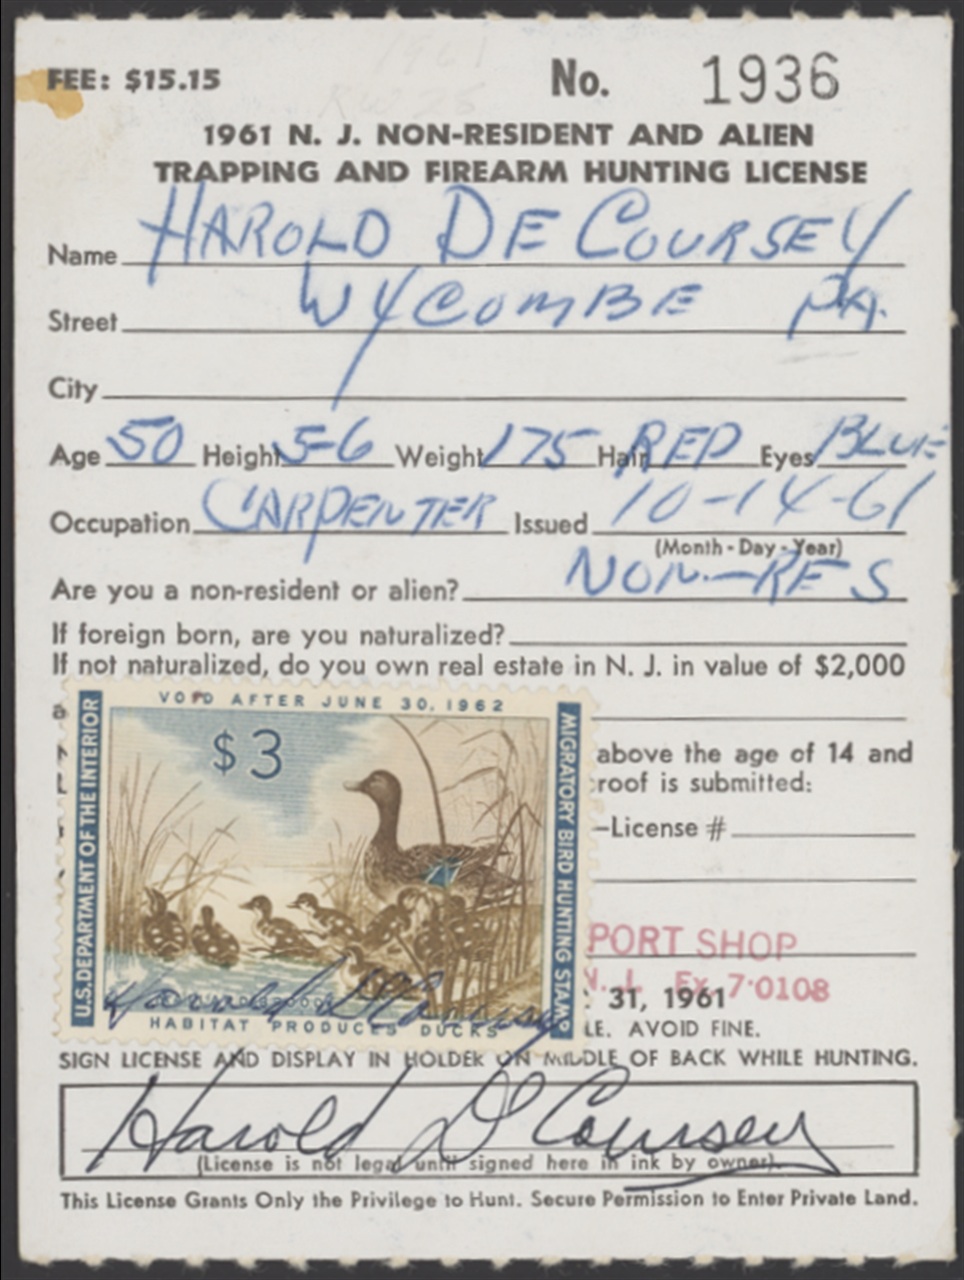 FEE: $15.15 No. 1936
1961 N. J. NON-RESIDENT AND ALIEN
TRAPPING AND FIREARM HUNTING LICENSE
Name HAROLD DE COURSEY
Street WYCOMBE PA.
City
Age 50 Height 5-6 Weight 175 Hair RED Eyes BLUE
Occupation CARPENTER Issued 10-14-61
(Month - Day - Year)
Are you a non-resident or alien? NON-RES
If foreign born, are you naturalized?
If not naturalized, do you own real estate in N. J. in value of $2,000
VOID AFTER JUNE 30, 1962
U.S. DEPARTMENT OF THE INTERIOR
$3
MIGRATORY BIRD HUNTING STAMP
above the age of 14 and
roof is submitted:
–License #
PORT SHOP
N. J. Ex. 7-0108
31, 1961
Harold D Coursey
HABITAT PRODUCES DUCKS
LE. AVOID FINE.
SIGN LICENSE AND DISPLAY IN HOLDER ON MIDDLE OF BACK WHILE HUNTING.
Harold D Coursey
(License is not legal until signed here in ink by owner).
This License Grants Only the Privilege to Hunt. Secure Permission to Enter Private Land.